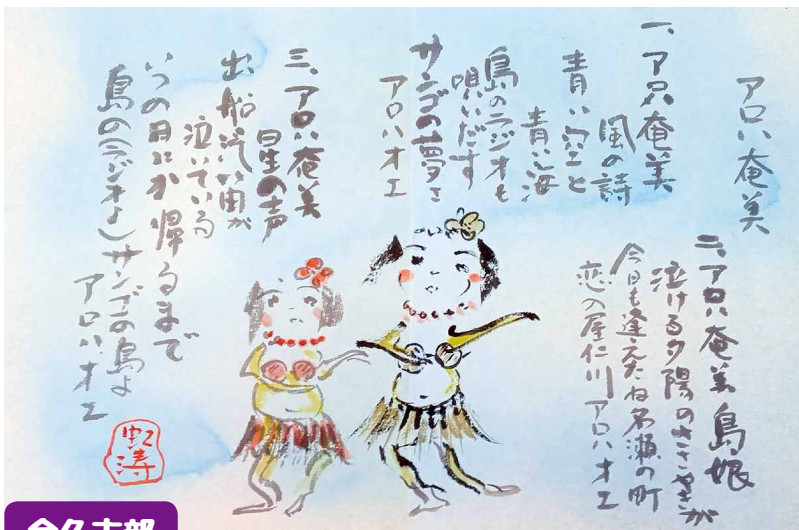 アロハ奄美
一、アロハ奄美
風の詩
青い空と
青い海
島のラジオも
唄いだす
サンゴの夢さ
アロハオエ
二、アロハ奄美島娘
泣ける夕陽のささやきが
今日も逢えたね名瀬の町
恋の屋仁川アロハオエ
三、アロハ奄美
星の声
出船汽笛が
泣いている
いつの日にか帰るまで
島のラジオよサンゴの島よ
アロハオエ